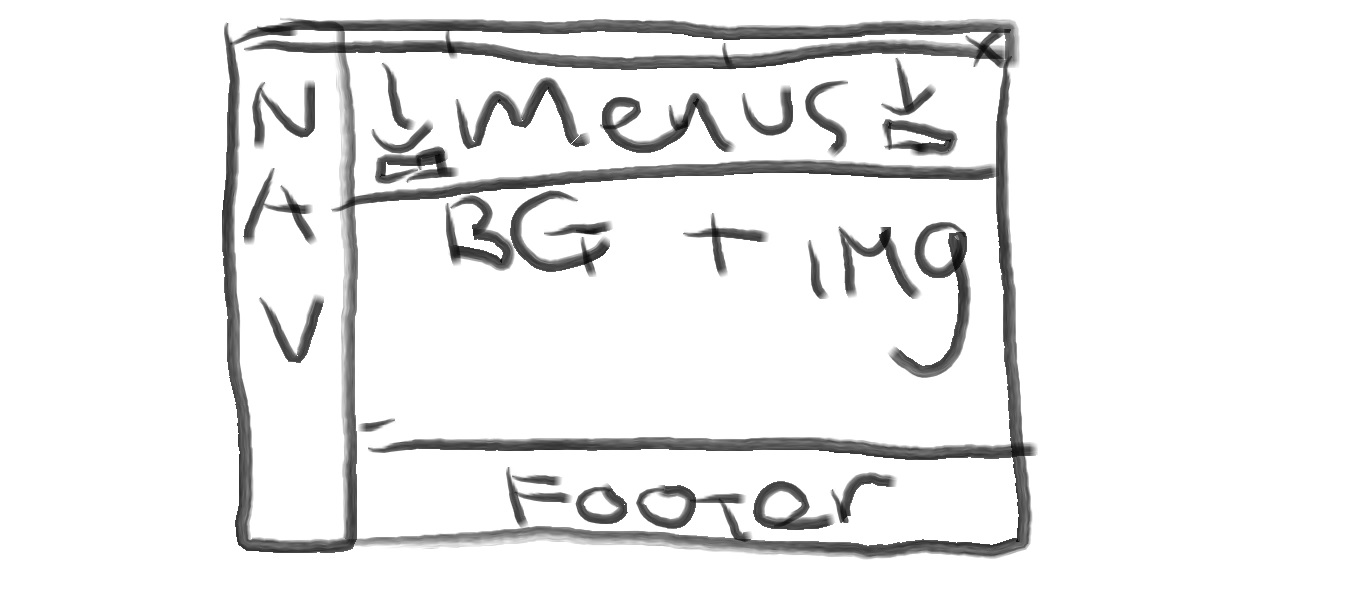 X
NAV
Menus
BG + IMg
Footer